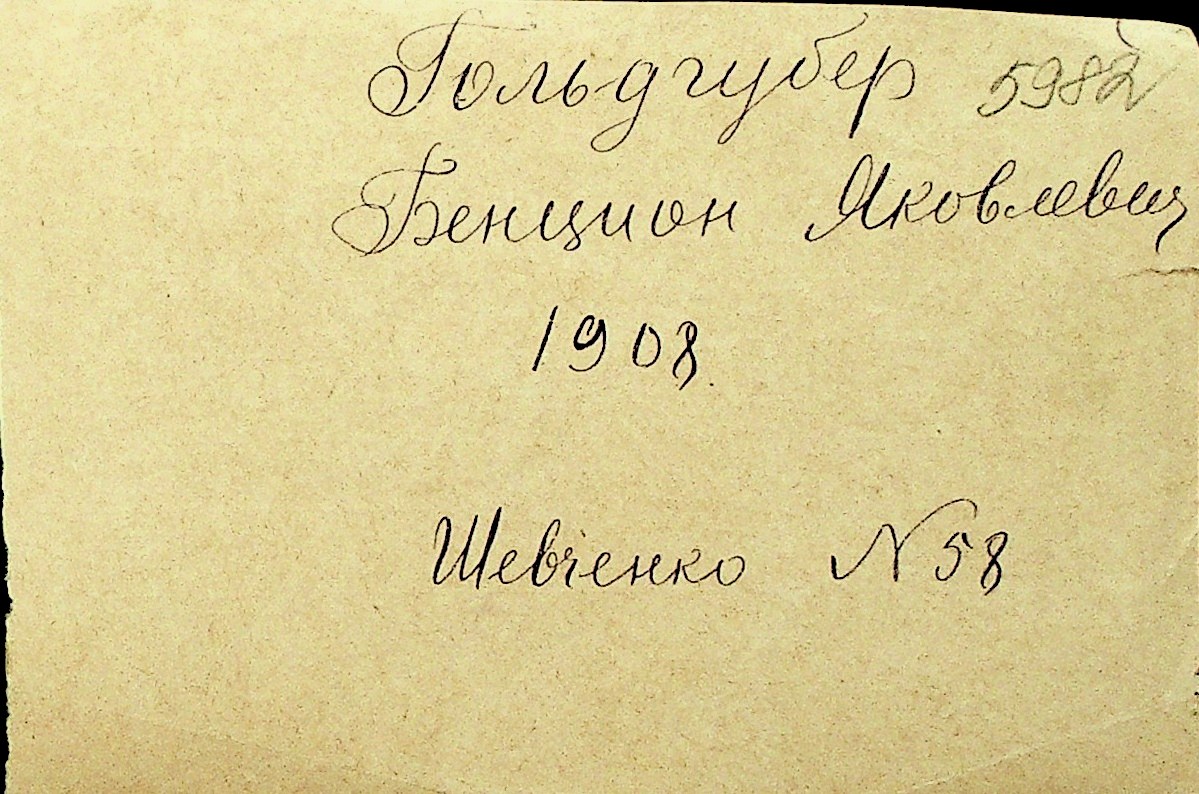 Гольдгубер 5982
Бенцион Яковлевич
1908.
Шевченко N 58